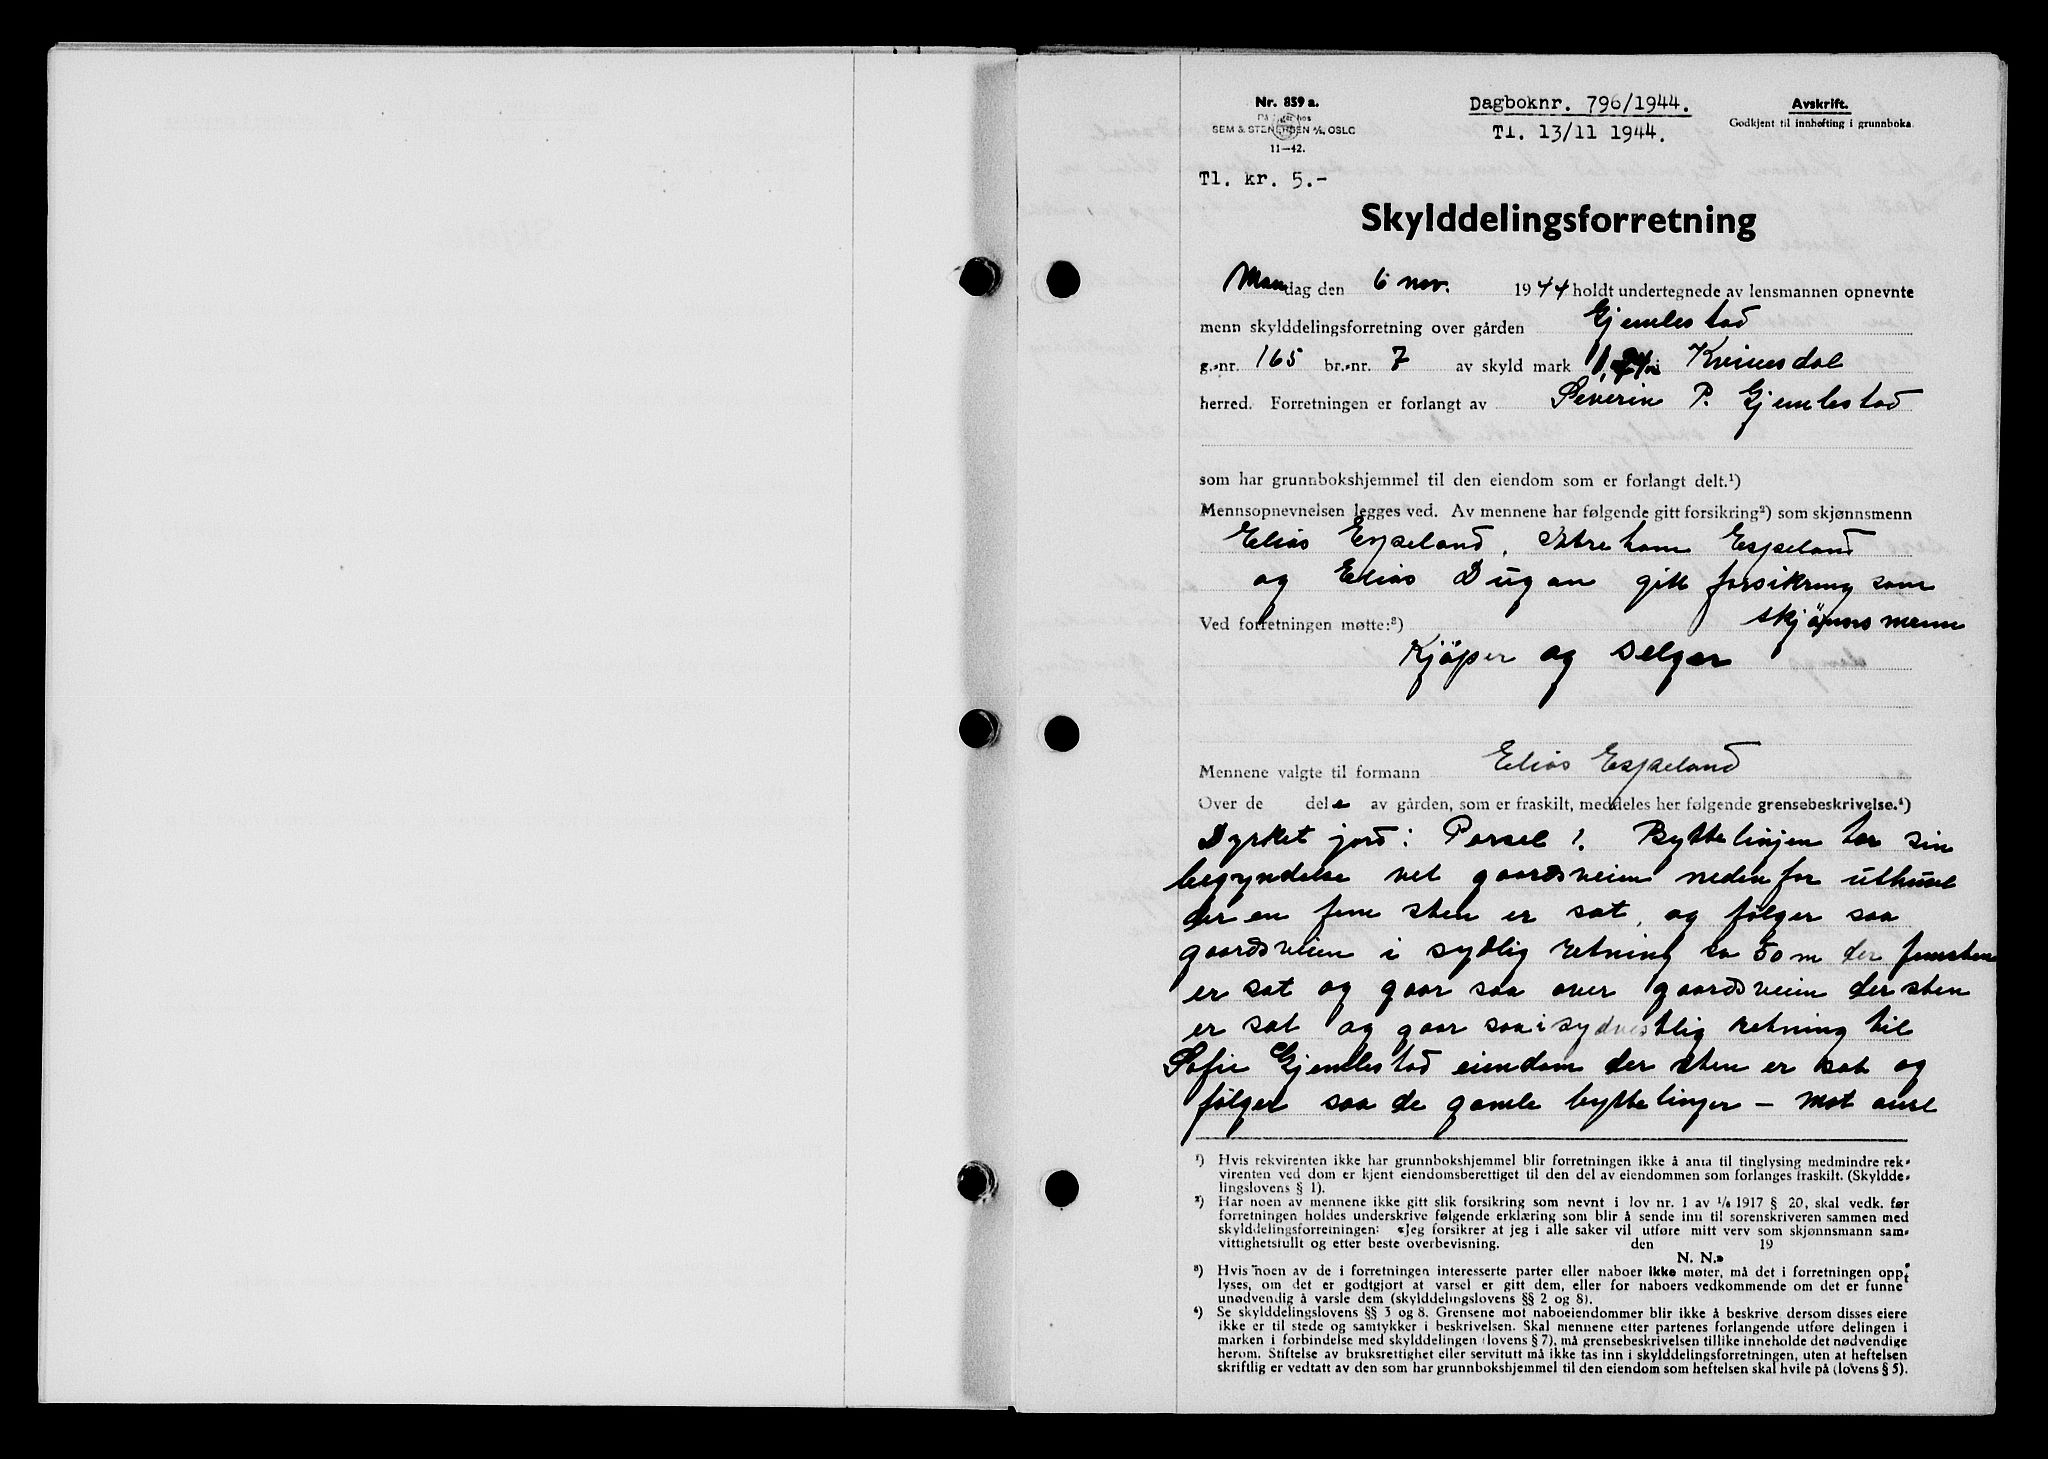 Nr. 859 a.
På lager hos
SEM & STENERSEN A/S, OSLO
11—42.
Dagboknr. 796/1944.
Tl. 13/11 1944.
Avskrift.
Godkjent til innhefting i grunnboka.
Tl. kr. 5.-
Skylddelingsforretning
Mandag den 6 nov. 1944 holdt undertegnede av lensmannen opnevnte
menn skylddelingsforretning over gården Gjemlestad
g.-nr. 165 br.-nr. 7 av skyld mark i Kvinesdal
herred. Forretningen er forlangt av Severin P. Gjemlestad
som har grunnbokshjemmel til den eiendom som er forlangt delt.¹)
Mennsopnevnelsen legges ved. Av mennene har følgende gitt forsikring²) som skjønnsmenn
Elias Espeland, Abraham Espeland
og Elias Dugan gitt forsikring som
skjönnsmenn
Ved forretningen møtte:³)
Kjöper og selger
Mennene valgte til formann Elias Espeland
Over de dele av gården, som er fraskilt, meddeles her følgende grensebeskrivelse.⁴)
Dyrket jord: Parsel 1. Byttelinjen tar sin
begyndelse vet gaardsveien nedenfor uthuset
der en sten er sat, og følger saa
gaardsveien i sydlig retning ca 50 m der
er sat og gaar saa over gaardsveien der sten
er sat og gaar saa i sydvestlig retning til
Sofie Gjemlestad eiendom der sten er sat og
følger saa de gamle byttelinjer – Mot
¹) Hvis rekvirenten ikke har grunnbokshjemmel blir forretningen ikke å anta til tinglysing medmindre rek-
virenten ved dom er kjent eiendomsberettiget til den del av eiendommen som forlanges fraskilt. (Skyldde-
lingslovens § 1).
²) Har noen av mennene ikke gitt slik forsikring som nevnt i lov nr. 1 av 1/6 1917 § 20, skal vedk. før
forretningen holdes underskrive følgende erklæring som blir å sende inn til sorenskriveren sammen med
skylddelingsforretningen: «Jeg forsikrer at jeg i alle saker vil utføre mitt verv som skjønnsmann sam-
vittighetsfullt og etter beste overbevisning. den 19
N. N.»
³) Hvis noen av de i forretningen interesserte parter eller naboer ikke møter, må det i forretningen opp-
lyses, om det er godtgjort at varsel er gitt dem, eller for naboers vedkommende om det er funnet
unødvendig å varsle dem (skylddelingslovens §§ 2 og 8).
⁴) Se skylddelingslovens §§ 3 og 8. Grensene mot naboeiendommer blir ikke å beskrive dersom disses eiere
ikke er til stede og samtykker i beskrivelsen. Skal mennene etter partenes forlangende utføre delingen i
marken i forbindelse med skylddelingen (lovens § 7), må grensebeskrivelsen tillike inneholde det nødvendige
herom. Stiftelse av bruksrettighet eller servitutt må ikke tas inn i skylddelingsforretningen, uten at heftelsen
skriftlig er vedtatt av den som har grunnbokshjemmel til den eiendom som heftelsen skal hvile på (lovens § 5).